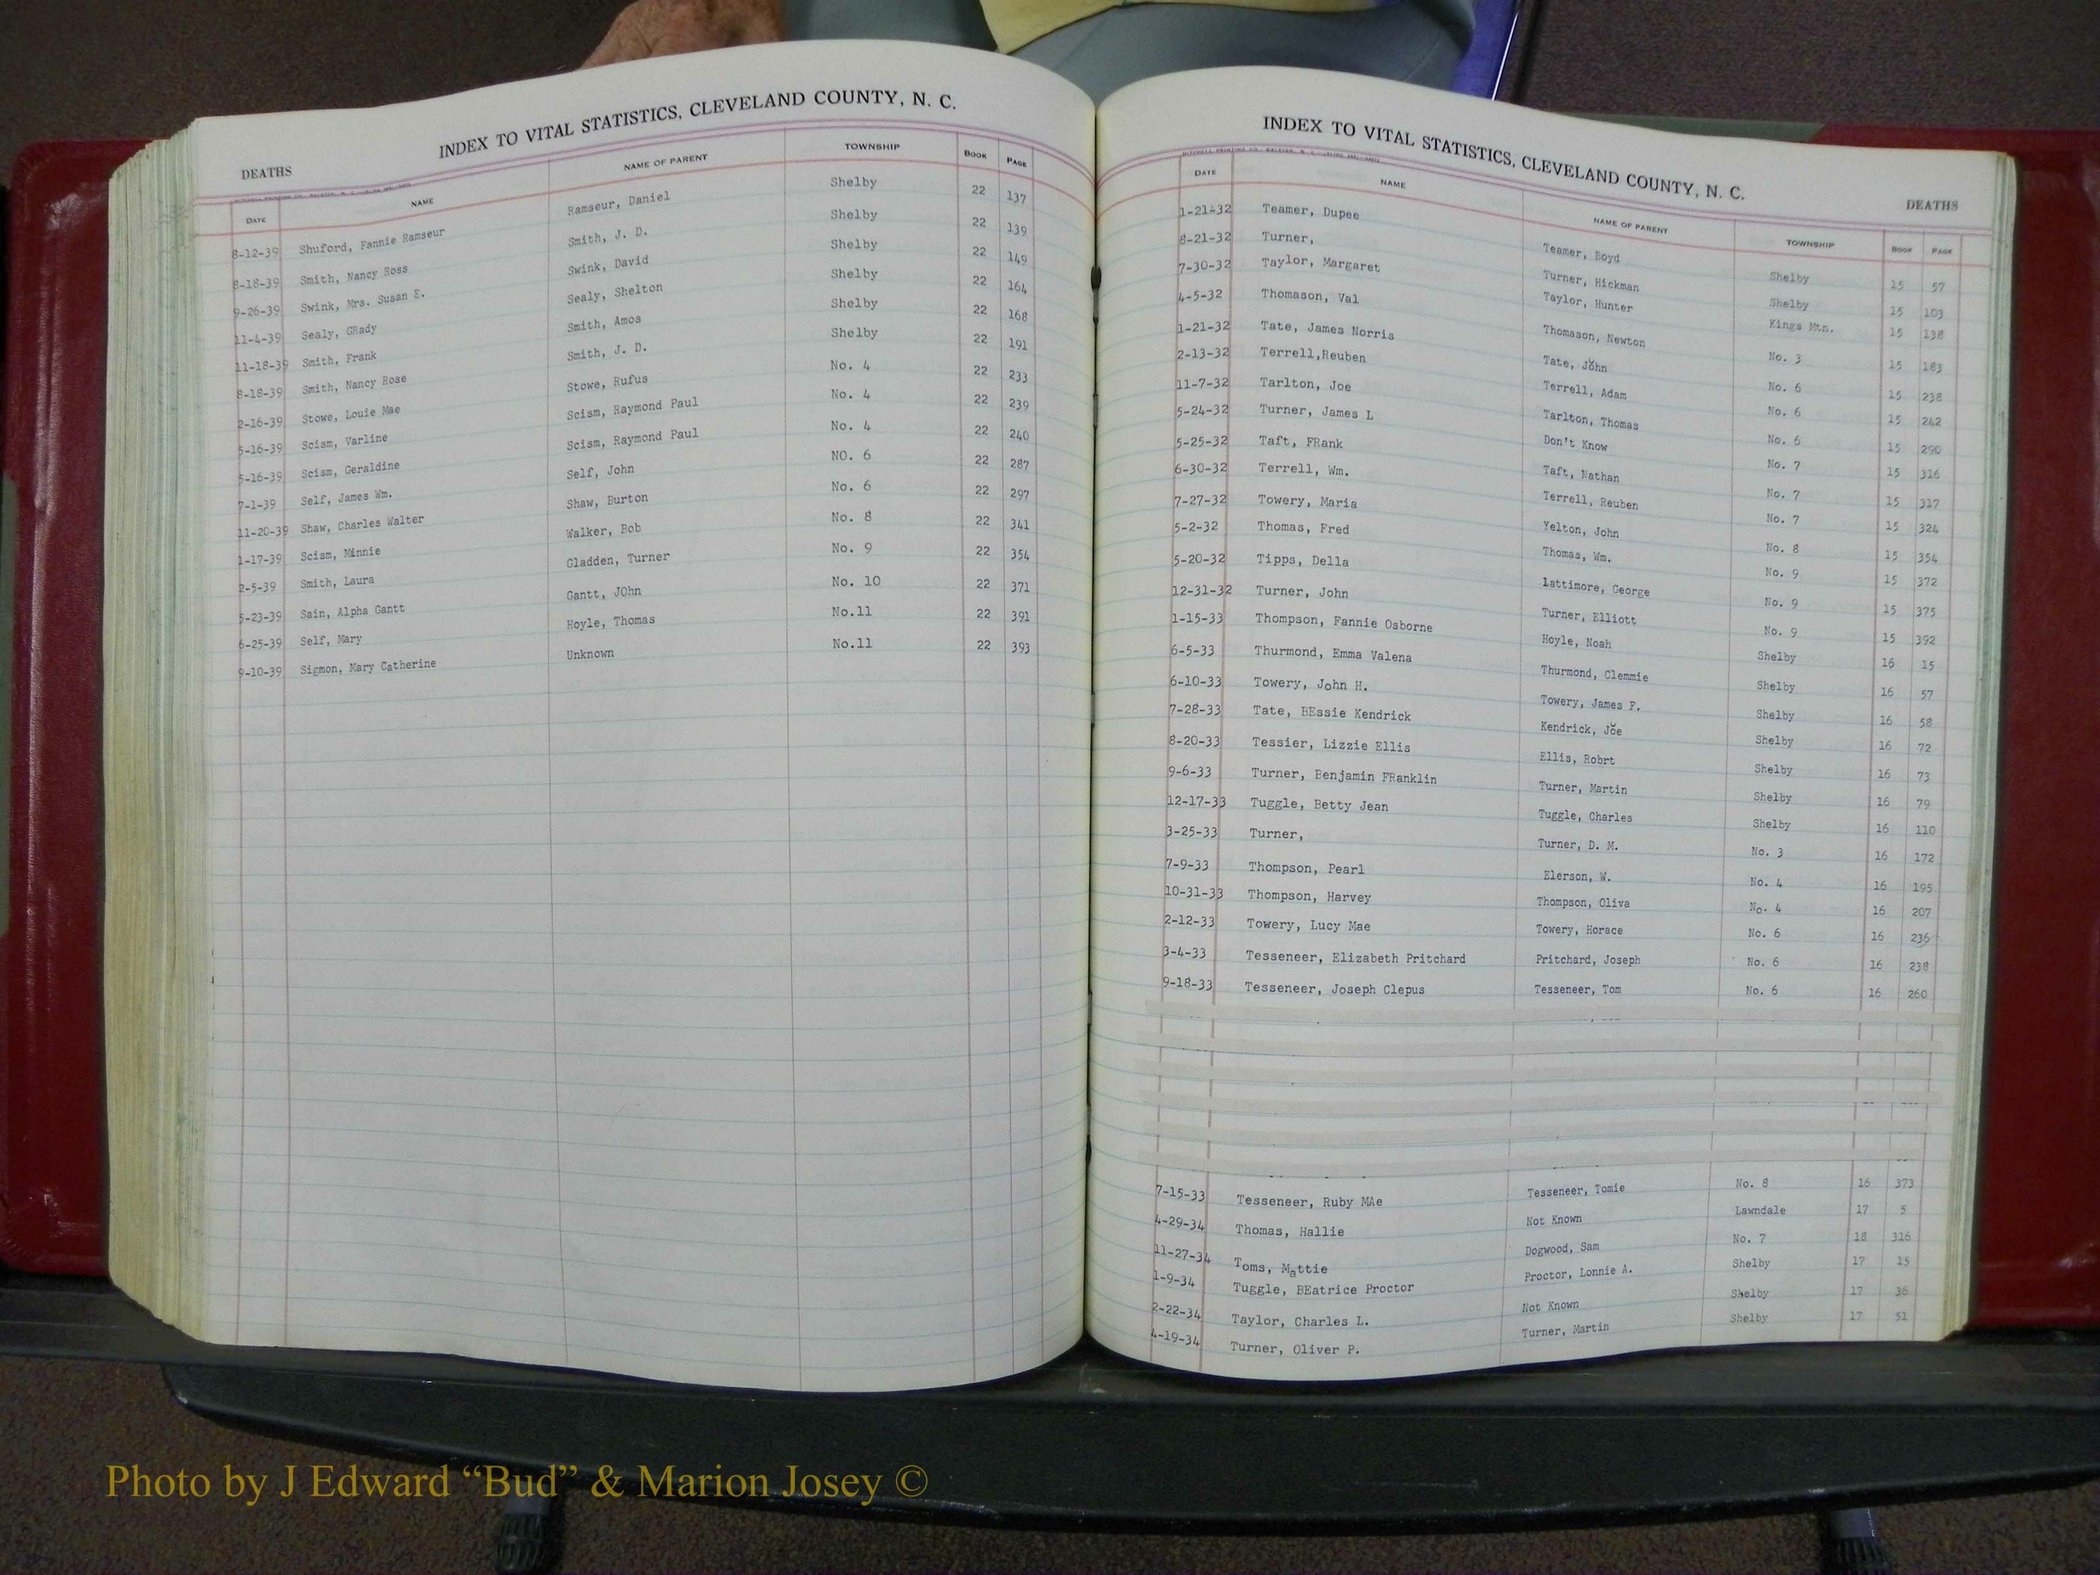 INDEX TO VITAL STATISTICS, CLEVELAND COUNTY, N. C.
DEATHS
DATE NAME NAME OF PARENT TOWNSHIP BOOK PAGE
8-12-39 Shuford, Fannie Ramseur Ramseur, Daniel Shelby 22 137
8-18-39 Smith, Nancy Ross Smith, J. D. Shelby 22 139
9-26-39 Swink, Mrs. Susan E. Swink, David Shelby 22 149
11-4-39 Sealy, GRady Sealy, Shelton Shelby 22 164
11-18-39 Smith, Frank Smith, Amos Shelby 22 168
8-18-39 Smith, Nancy Rose Smith, J. D. Shelby 22 191
2-16-39 Stowe, Louie Mae Stowe, Rufus No. 4 22 233
5-16-39 Scism, Varline Scism, Raymond Paul No. 4 22 239
5-16-39 Scism, Geraldine Scism, Raymond Paul No. 4 22 240
7-1-39 Self, James Wm. Self, John NO. 6 22 287
11-20-39 Shaw, Charles Walter Shaw, Burton No. 6 22 297
1-17-39 Scism, Minnie Walker, Bob No. 8 22 341
2-5-39 Smith, Laura Gladden, Turner No. 9 22 354
5-23-39 Sain, Alpha Gantt Gantt, JOhn No. 10 22 371
6-25-39 Self, Mary Hoyle, Thomas No.11 22 391
9-10-39 Sigmon, Mary Catherine Unknown No.11 22 393
INDEX TO VITAL STATISTICS, CLEVELAND COUNTY, N. C.
DEATHS
DATE NAME NAME OF PARENT TOWNSHIP BOOK PAGE
1-21-32 Teamer, Dupee Teamer, Boyd Shelby 15 57
8-21-32 Turner, Turner, Hickman Shelby 15 103
7-30-32 Taylor, Margaret Taylor, Hunter Kings Mtn. 15 138
4-5-32 Thomason, Val Thomason, Newton No. 3 15 183
1-21-32 Tate, James Norris Tate, John No. 6 15 238
2-13-32 Terrell,Reuben Terrell, Adam No. 6 15 242
11-7-32 Tarlton, Joe Tarlton, Thomas No. 6 15 290
5-24-32 Turner, James L Don't Know No. 7 15 316
5-25-32 Taft, FRank Taft, Nathan No. 7 15 317
6-30-32 Terrell, Wm. Terrell, Reuben No. 7 15 324
7-27-32 Towery, Maria Yelton, John No. 8 15 354
5-2-32 Thomas, Fred Thomas, Wm. No. 9 15 372
5-20-32 Tipps, Della Lattimore, George No. 9 15 375
12-31-32 Turner, John Turner, Elliott No. 9 15 392
1-15-33 Thompson, Fannie Osborne Hoyle, Noah Shelby 16 15
6-5-33 Thurmond, Emma Valena Thurmond, Clemmie Shelby 16 57
6-10-33 Towery, John H. Towery, James F. Shelby 16 58
7-28-33 Tate, BEssie Kendrick Kendrick, Joe Shelby 16 72
8-20-33 Tessier, Lizzie Ellis Ellis, Robrt Shelby 16 73
9-6-33 Turner, Benjamin FRanklin Turner, Martin Shelby 16 79
12-17-33 Tuggle, Betty Jean Tuggle, Charles Shelby 16 110
3-25-33 Turner, Turner, D. M. No. 3 16 172
7-9-33 Thompson, Pearl Elerson, W. No. 4 16 195
10-31-33 Thompson, Harvey Thompson, Oliva No. 4 16 207
2-12-33 Towery, Lucy Mae Towery, Horace No. 6 16 236
3-4-33 Tesseneer, Elizabeth Pritchard Pritchard, Joseph No. 6 16 238
9-18-33 Tesseneer, Joseph Clepus Tesseneer, Tom No. 6 16 260
7-15-33 Tesseneer, Ruby MAe Tesseneer, Tomie No. 8 16 373
4-29-34 Thomas, Hallie Not Known Lawndale 17 5
11-27-34 Toms, Mattie Dogwood, Sam No. 7 18 316
1-9-34 Tuggle, BEatrice Proctor Proctor, Lonnie A. Shelby 17 15
2-22-34 Taylor, Charles L. Not Known Shelby 17 36
4-19-34 Turner, Oliver P. Turner, Martin Shelby 17 51
Photo by J Edward “Bud” & Marion Josey ©